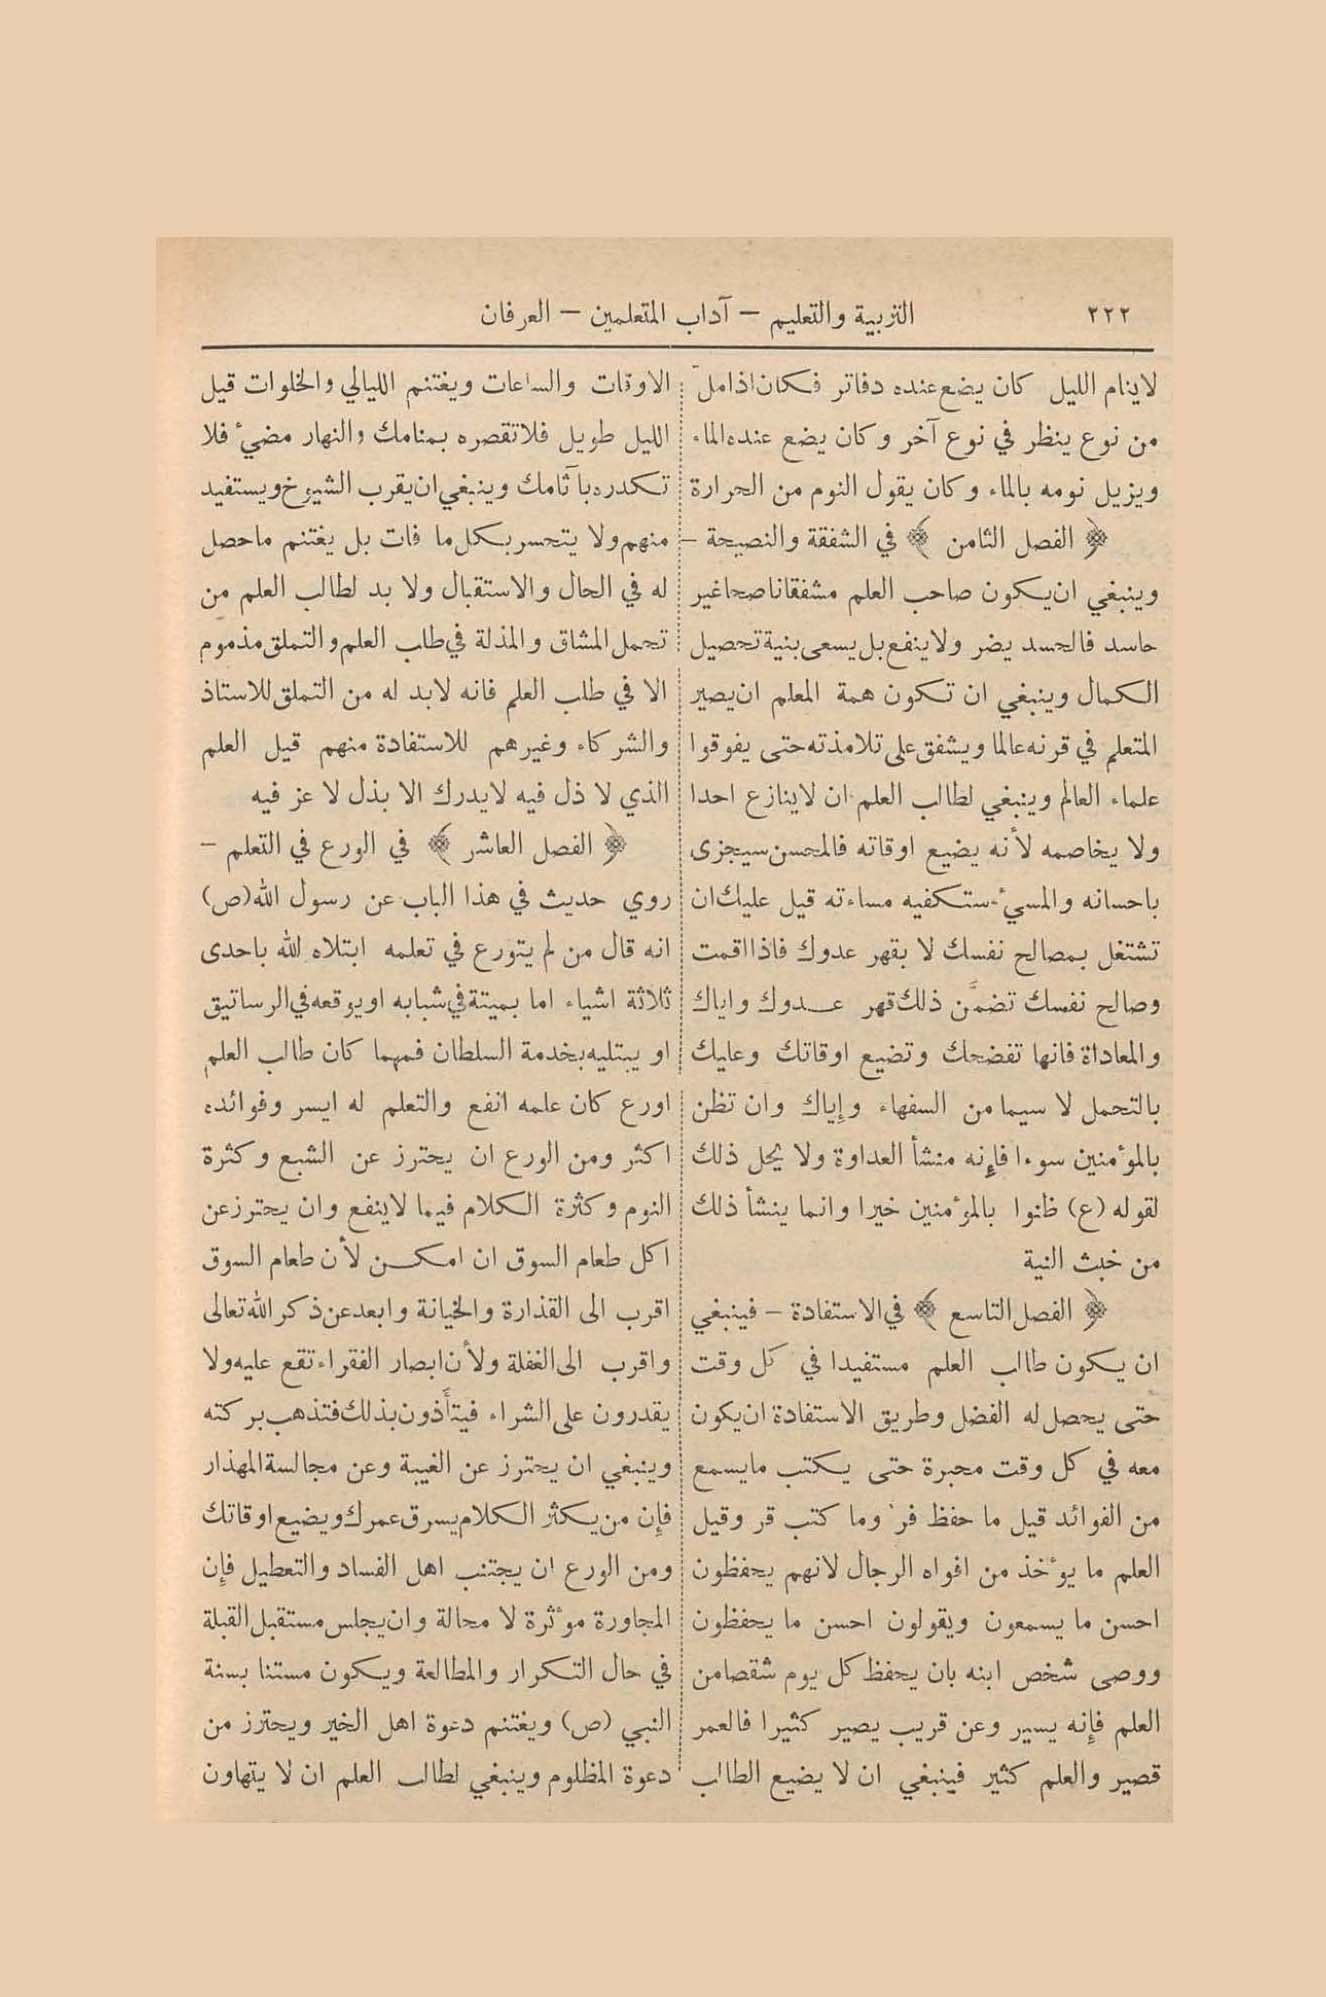 ٢٢٢
التربية والتعليم — آداب المتعلمين — العرفان
لاينام الليل كان يضع عنده دفاتر فكان اذا مل
من نوع ينظر في نوع آخر وكان يضع عنده الماء
ويزيل نومه بالماء وكان يقول النوم من الحرارة
﴿ الفصل الثامن ﴾ في الشفقة والنصيحة —
وينبغي ان يكون صاحب العلم مشفقا ناصحا غير
حاسد فالحسد يضر ولا ينفع بل يسعى بنية تحصيل
الكمال وينبغي ان تكون همة المعلم ان يصير
المتعلم في قرنه عالما ويشفق على تلامذته حتى يفوقوا
علماء العالم وينبغي لطالب العلم ان لاينازع احدا
ولا يخاصمه لأنه يضيع اوقاته فالمحسن سيجزى
باحسانه والمسيء ستكفيه مساءته قيل عليك ان
تشتغل بمصالح نفسك لا بقهر عدوك فاذا اقمت
وصالح نفسك تضمَّن ذلك قهر عدوك واياك
والمعاداة فانها تفضحك وتضيع اوقاتك وعليك
بالتحمل لا سيما من السفهاء وإياك وان تظن
بالمؤمنين سوءا فإنه منشأ العداوة ولا يحل ذلك
لقوله (ع) ظنوا بالمؤمنين خيرا وانما ينشأ ذلك
من خبث النية
﴿ الفصل التاسع ﴾ في الاستفادة — فينبغي
ان يكون طالب العلم مستفيدا في كل وقت
حتى يحصل له الفضل وطريق الاستفادة ان يكون
معه في كل وقت محبرة حتى يكتب مايسمع
من الفوائد قيل ما حفظ فر وما كتب قر وقيل
العلم ما يؤخذ من افواه الرجال لانهم يحفظون
احسن ما يسمعون ويقولون احسن ما يحفظون
ووصى شخص ابنه بان يحفظ كل يوم شقصا من
العلم فإنه يسير وعن قريب يصير كثيرا فالعمر
قصير والعلم كثير فينبغي ان لا يضيع الطالب
الاوقات والساعات ويغتنم الليالي والخلوات قيل
الليل طويل فلا تقصره بمنامك والنهار مضيء فلا
تكدره بآثامك وينبغي ان يقرب الشيوخ ويستفيد
منهم ولا يتحسر بكل ما فات بل يغتنم ما حصل
له في الحال والاستقبال ولا بد لطالب العلم من
تحمل المشاق والمذلة في طلب العلم والتملق مذموم
الا في طلب العلم فانه لابد له من التملق للاستاذ
والشركاء وغيرهم للاستفادة منهم قيل العلم
الذي لا ذل فيه لايدرك الا بذل لا عز فيه
﴿ الفصل العاشر ﴾ في الورع في التعلم —
روي حديث في هذا الباب عن رسول الله (ص)
انه قال من لم يتورع في تعلمه ابتلاه الله باحدى
ثلاثة اشياء اما بميتة في شبابه او يوقعه في الرساتيق
او يبتليه بخدمة السلطان فمهما كان طالب العلم
اورع كان علمه انفع والتعلم له ايسر وفوائده
اكثر ومن الورع ان يحترز عن الشبع وكثرة
النوم وكثرة الكلام فيما لاينفع وان يحترز عن
اكل طعام السوق ان امكن لأن طعام السوق
اقرب الى القذارة والخيانة وابعد عن ذكر الله تعالى
واقرب الى الغفلة ولأن ابصار الفقراء تقع عليه ولا
يقدرون على الشراء فيتأذون بذلك فتذهب بركته
وينبغي ان يحترز عن الغيبة وعن مجالسة المهذار
فإن من يكثر الكلام يسرق عمرك ويضيع اوقاتك
ومن الورع ان يجتنب اهل الفساد والتعطيل فإن
المجاورة مؤثرة لا محالة وان يجلس مستقبل القبلة
في حال التكرار والمطالعة ويكون مستنا بسنة
النبي (ص) ويغتنم دعوة اهل الخير ويحترز من
دعوة المظلوم وينبغي لطالب العلم ان لا يتهاون